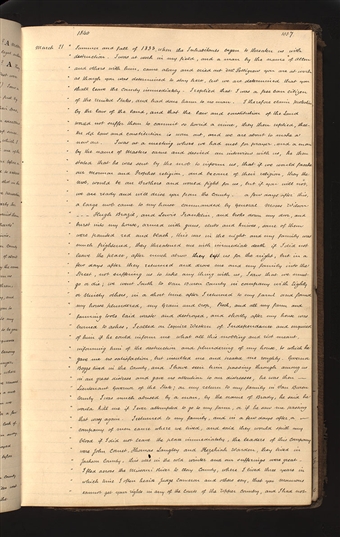 1840
1107
March 11 " Summer and fall of 1833, when the Inhabitants began to threaten us with
" destruction. I was at work in my field, and a man by the name of Allen
" and others with him, came along and cried out
" as though you was determined to stay here, but we are determined that you
" shall leave the County immediately. I replied that I was a free born citizen
" of the United State, and had done harm to no man. I therefore claim protection
" by the law of the land, and that the law and constitution of the land
" would not suffer them to commit so horrid a crime, they then replied, that
" the old law and constitution is worn out, and we are about to make a
" new one. I was at a meeting where we had met for prayer, and a man
" by the name of Masters came and desired an interview with us, he then
" stated that he was sent by the mob to inform us, that if we would forsake
" our Mormon and Prophet religion, and become of their religion, they the
" mob, would be our Brothers and would fight for us, but if you will not,
" we are ready and will drive you from the County. a few days after this
" a large mob came to my house commanded by General Moses Wilson
" Hugh Brazil, and Lewis Franklin, and broke down my door, and
" burst into my house, armed with guns, clubs and knives, some of them
" were painted red and black, this was in the night and my family was
" much frightened, they threatened me with immediate death if I did not
" leave the place, after much abuse they left us for the night, but in a
" few days after they returned and drove me and my family into the
" street, not suffering us to take any thing with us, I saw that we must
" go or die, we went South to Van Buren County in company with Eighty
" or Ninety others, in a short time after I returned to my farm and found
" my house plundered, my Grain and crop, Stock, and all my farm and
" farming tools laid waste and destroyed, and shortly after my house was
" burned to ashes, I called on Esquire Weston of Independence and enquired
" of him if he could inform me what all this mobbing and riot meant,
" informing him of the destruction and plundering of my house to which he
" gave me no satisfaction, but insulted me and made me roughly. Governor
" Boggs lived in the County, and I have seen him passing through among us
" in our great distress and gave no attention to our distresses, he was then
" Lieutenant Governor of the State; on my return to my family in Van Buren
" County I was much abused by a man, by the name of Brady, he said he
" would kill me if I ever attempted to go to my farm, or if he saw me passing
" that way again. I returned to my family, and in a few days after, a
" company of men came where we lived, and said they would spill my
" blood if I did not leave the place immediately, the leaders of this Company
" were John Cornet, Thomas Langley and Hezekiah Warden, they lived in
" Jackson County; this was in the cold winter and our sufferings were great.
" I fled across the Missouri River to Clay County, where I lived three years in
" which time I often heard Judge Cameron and others say, that you Mormons
" cannot get your rights in any of the Courts of the Upper Country, and I had not